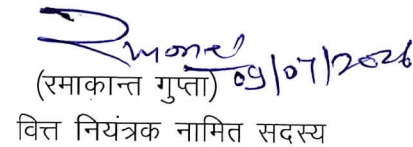 09/07/2026
(रमाकान्त गुप्ता)
वित्त नियंत्रक नामित सदस्य